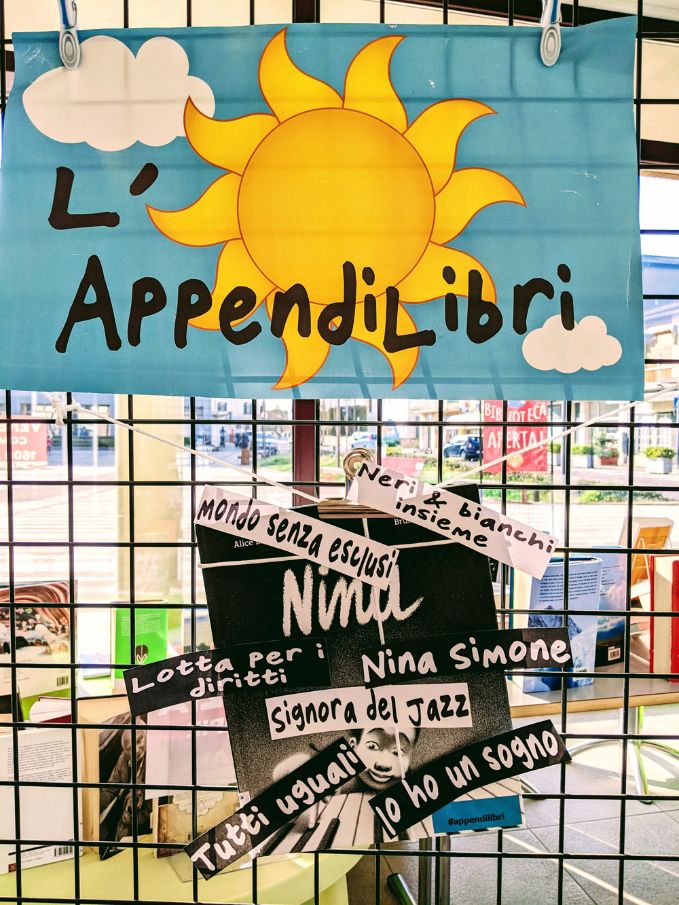 L'
AppendiLibri
BIBLIOTECA
APERTA!
Neri & bianchi
insieme
Mondo senza esclusi
Alice
Nina
Lotta per i
diritti
Nina Simone
Signora del Jazz
Tutti uguali
Io ho un sogno
#appendilibri